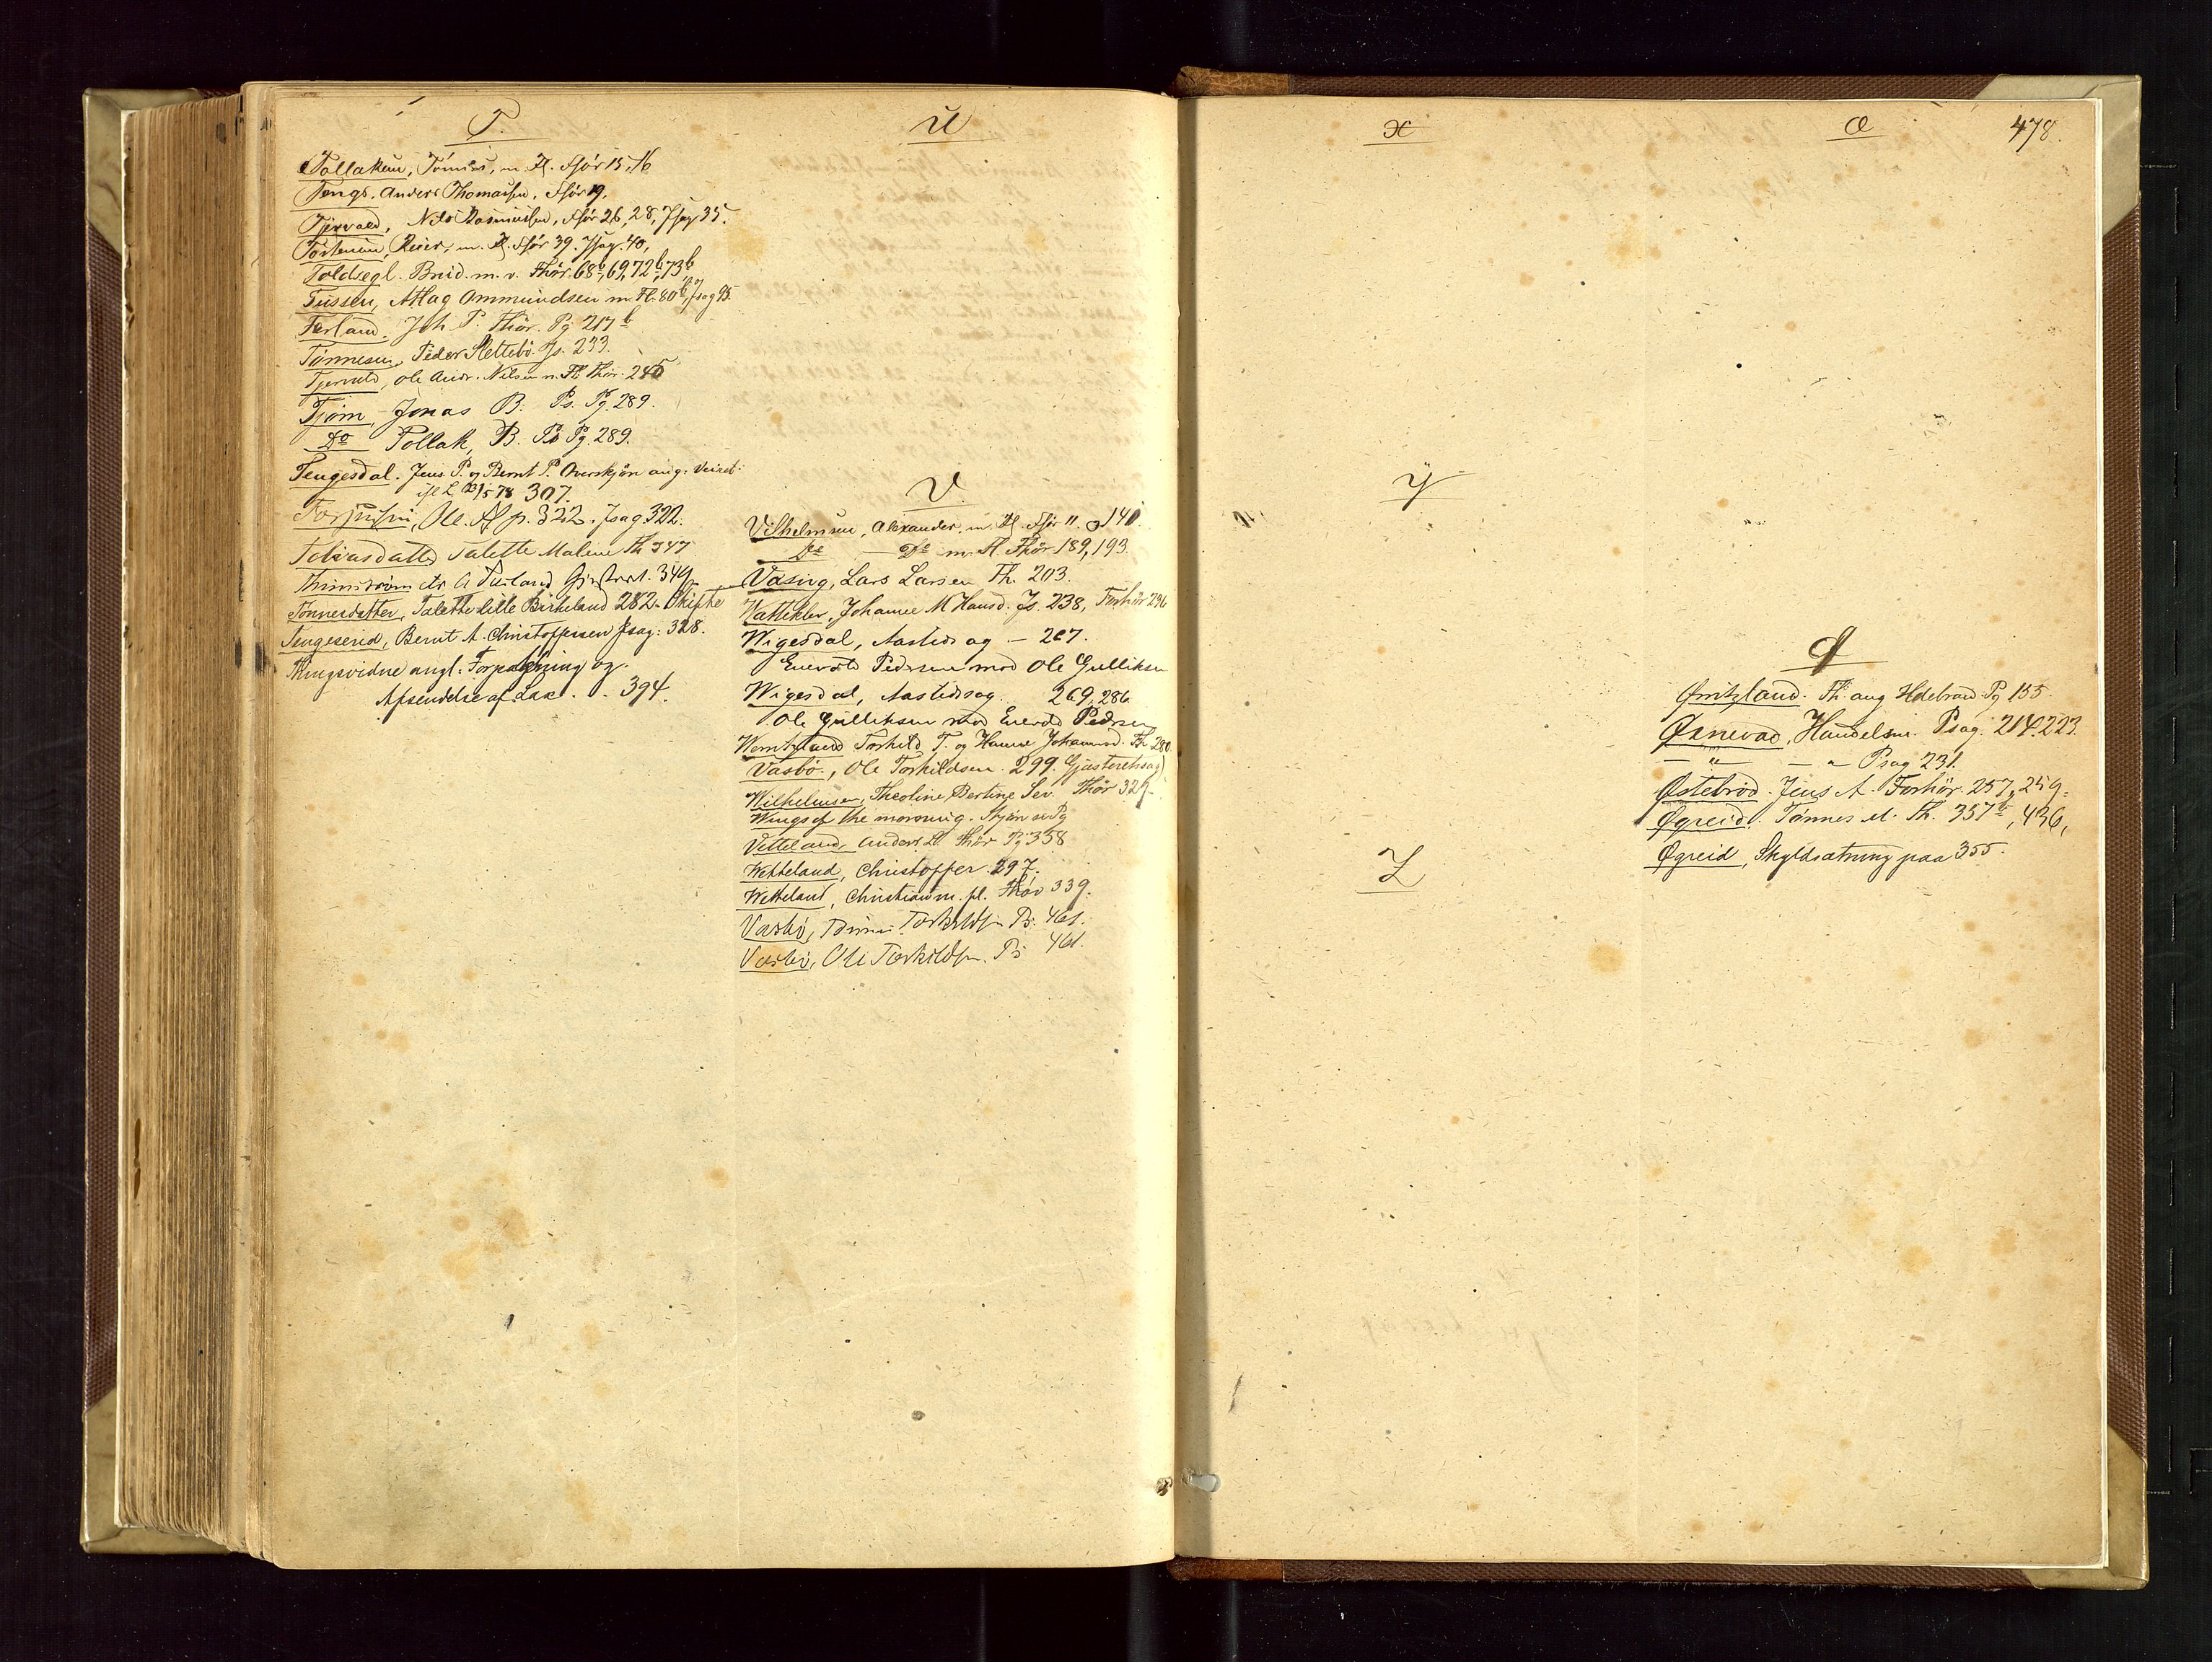 T.
Tollaksen, Tönnes, m. Fl. Fhör 15, 16
Tengs, Anders Thomassen, Fhör 19.
Tjærvald, Nils Rasmussen, Fhör 26, 28, Jsag 35.
Tostensen, Reier, m. Fl. Fhör 39. Jsag. 40,
Toldregl. Brud. m. v. Fhör. 68b, 69, 72b, 73b
Tussen, Atlag Ommundsen m. Fl. 80b, Jsag 95.
Tærland, Joh P. Fhör. Pg 217b
Tönnesen, Peder Slettebö. Js. 233.
Tjervald, Ole Andr. Nilsen m. Fl. Fhör. 245
Tjörn, Jonas B. Ps. Pg. 289.
Do Tollak, B. Ps Pg. 289.
Tengesdal. Jens P. og Bernt P. Overskjön ang. Veiarb.
iflL 23/5 78 307.
Ole. Af p. 322. Jsag 322.
Tobiasdatter Talette Malene Th 347
A Gjestret. 349
Tönnesdatter, Talette Lille Birkeland 282. Skifte
Tengesereid, Bernt A. Christoffersen Jsag: 328.
Thingsvidne angl. Forpakning og
Afsendelse af Lax. . 394.
U
V.
Vilhelmsen, Alexander, m. Fl. Fhör 11. 140.
Do — Do m. Fl. Fhör 189, 193.
Vasing, Lars Larsen Fh. 203.
Vattekler, Johanne M Hansd. Js. 238, Forhör 296
Wigesdal, Aastedsag — 267.
Enevold Pedersen mod Ole Gulliksen
Wigesdal, Aastedsag. 269, 286
Ole Gulliksen mod Enevold Pedersen
Torkild T. og Hanne Johannesd. Fh 280
Vasbö, Ole Torkildsen. 299. Gjesteretssag)
Wilhelmsen, Theoline Bertine Sev. Fhör 329.
Wings of the morning. Pg
Vetteland Anders Fhör Pg 358
Wetteland, Christoffer 297.
Wetteland, Christian m. fl. Fhör 339.
Vasbö, Torkildsen Ps. 461.
Vasbö, Ole Torkildsen. Ps 461.
X
Y
Z
Æ
478.
Ø
Fh. ang Ildebrand. Pg 155.
Øxnevad, Handelsm. Psag. 214. 223.
— " — — " Psag 231.
Østebröd. Jens A. Forhör. 257, 259.
Øgreid. Tönnes M. Fh. 357b, 436,
Øgreid, Skyldsætning paa 355.